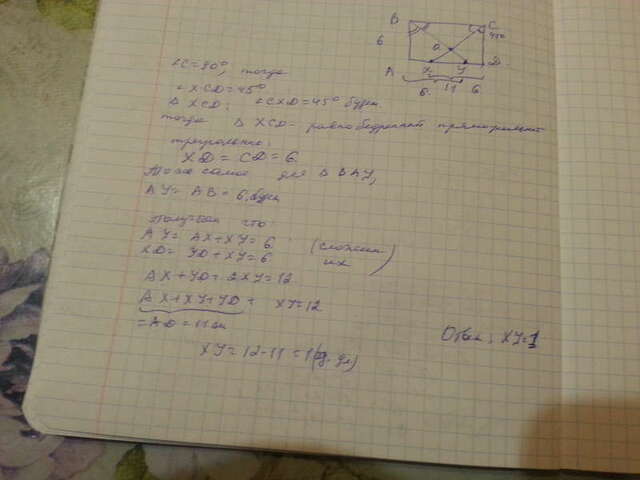 B C
6 45°
O
A X Y D
6 11 6
∠C=90°, тогда
∠XCD=45°
Δ XCD: ∠CXD=45° будет
тогда Δ XCD – равнобедренный прямоугольный
треугольник:
XD = CD = 6.
То же самое для Δ BAY,
AY = AB = 6, будет
Получаем что
AY = AX+XY = 6
XD = YD+XY=6 (сложим их)
AX+YD+2XY=12
AX+XY+YD + XY=12
=AD = 11 см
XY = 12-11 = 1 (ед. дл)
Ответ: XY=1